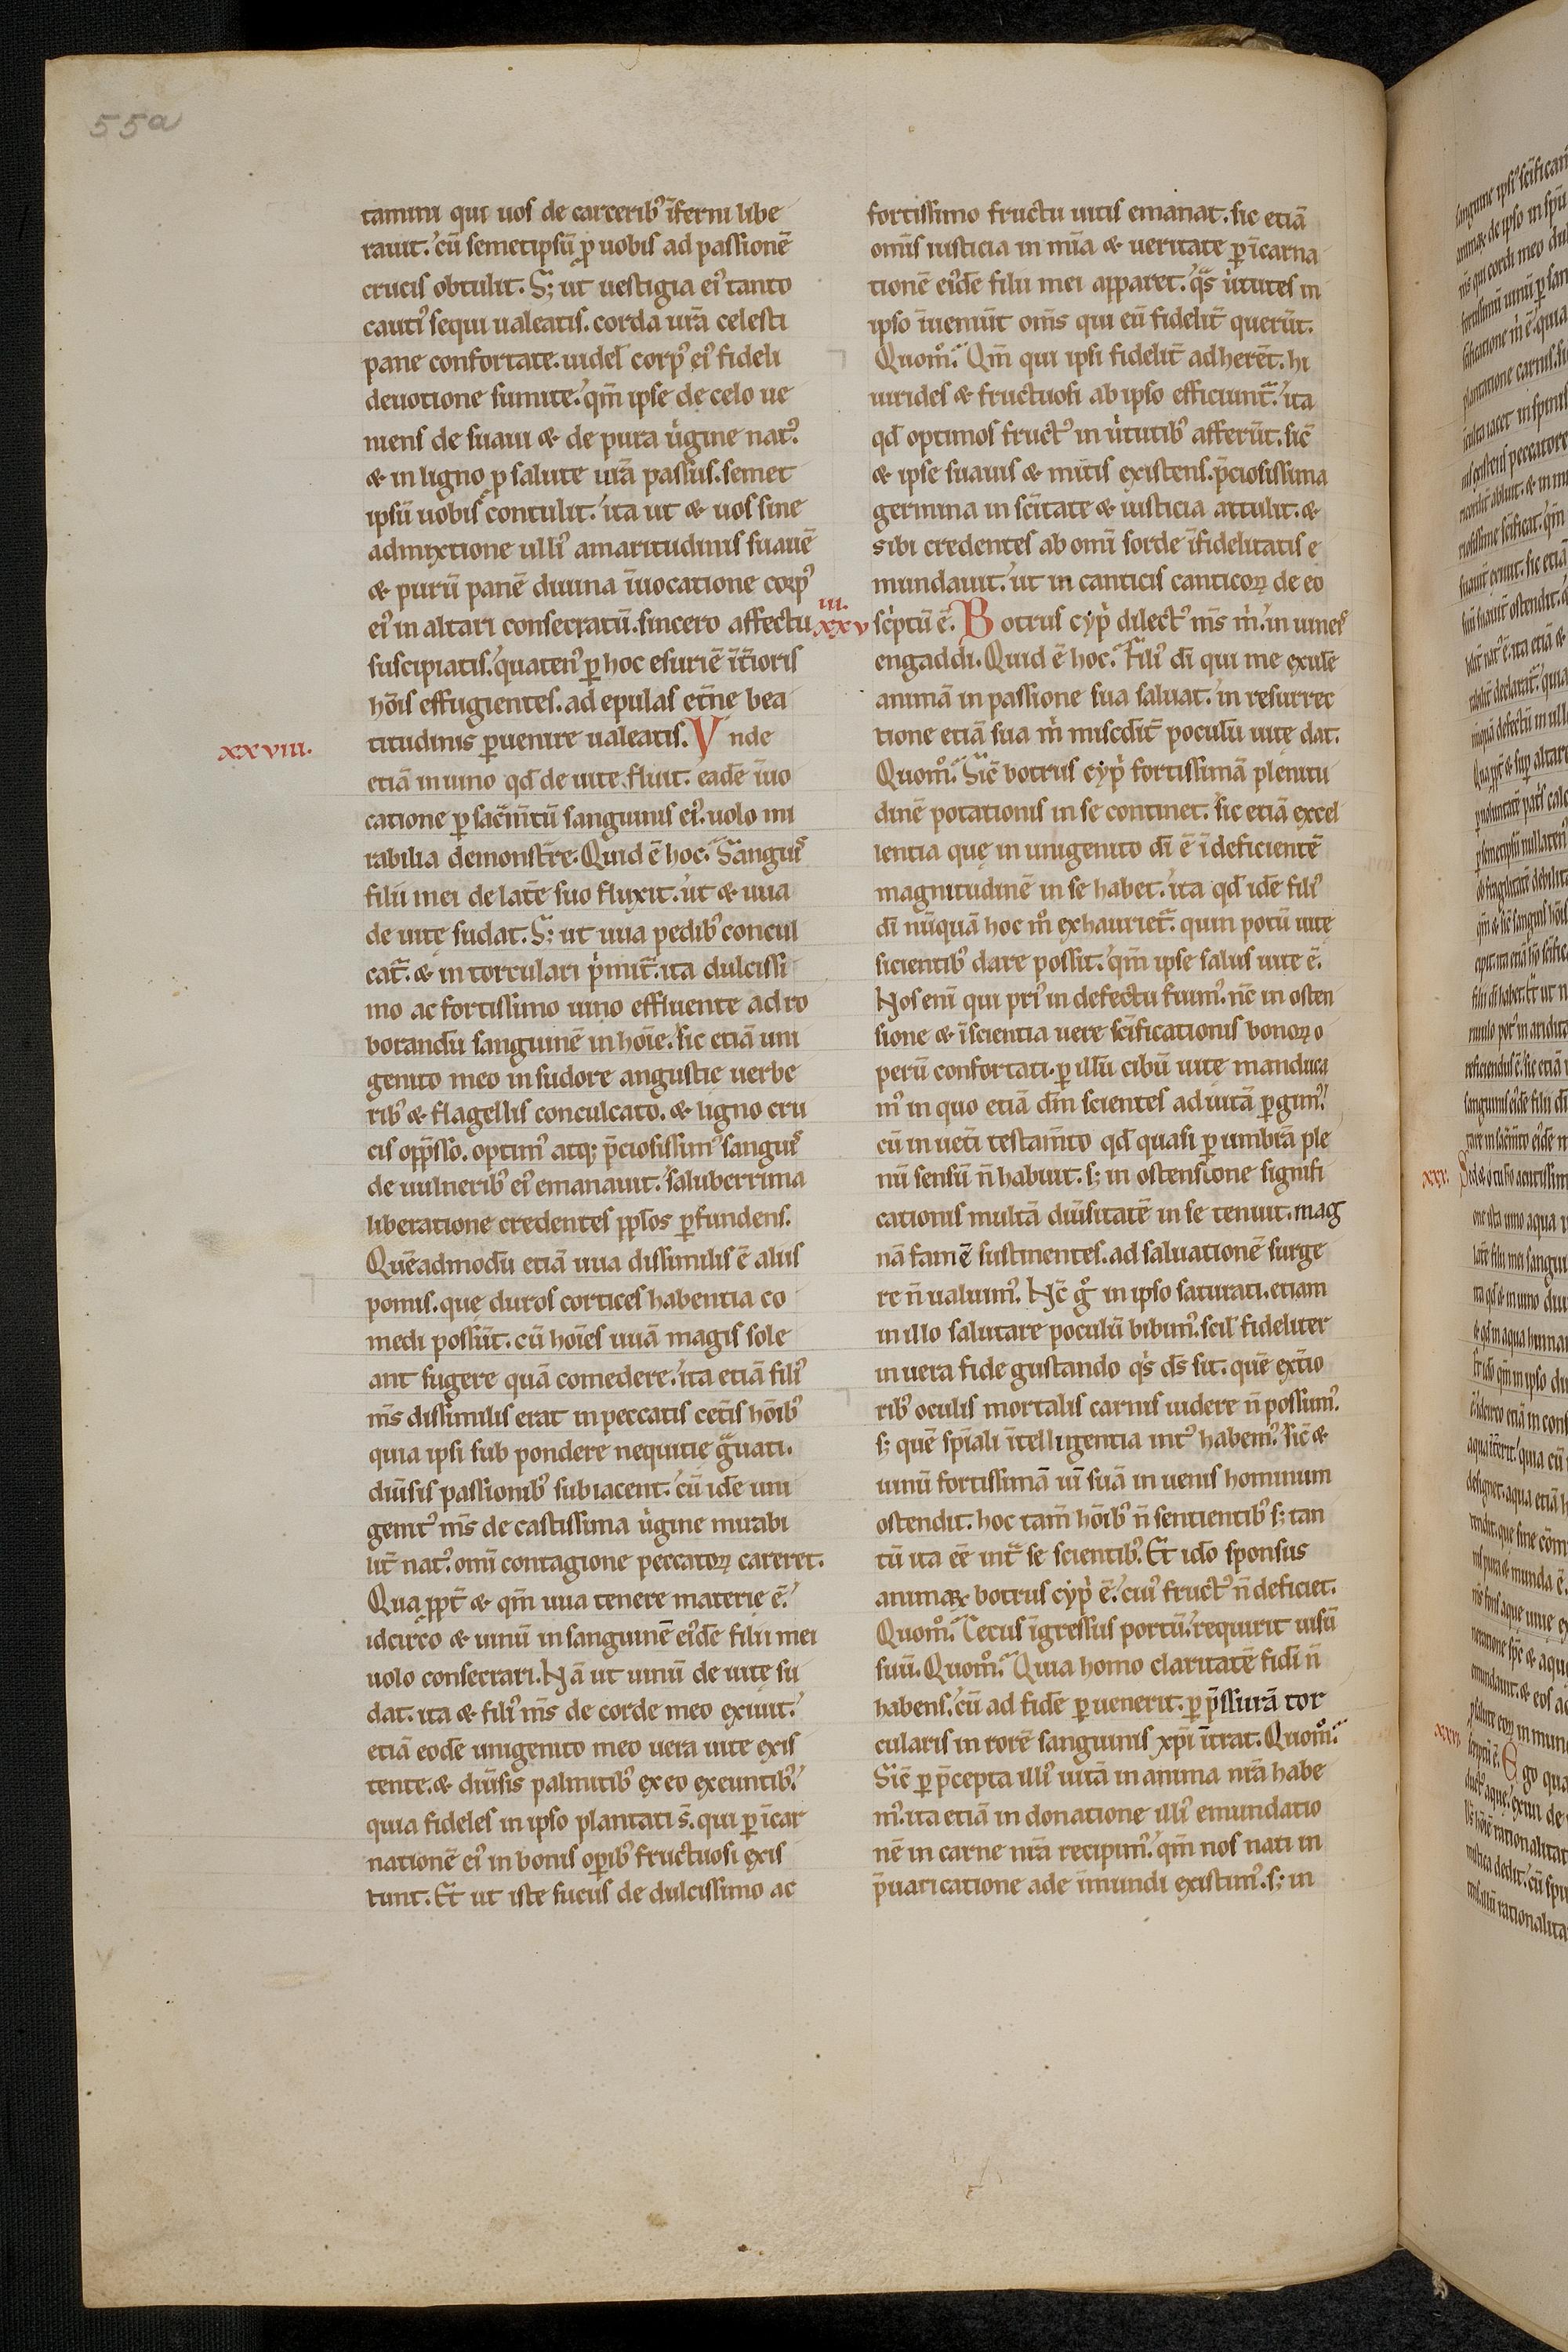 55a
tamini qui uos de carcerib᷒ īferni libe
rauit. cū semetipsū ꝓ uobis ad passionē
crucis obtulit. S; ut uestigia ei᷒ tanto
cauti᷒ sequi ualeatis. corda urā celesti
pane confortate. uidel̄ corp᷒ ei᷒ fideli
deuotione sumite. qm̄ ipse de celo ue
niens de suaui & de pura uͥgine nat᷒.
& in ligno ꝓ salute urā passus. semet
ipsū uobis contulit. ita ut & uos sine
admixtione ulli᷒ amaritudinis suauē
& purū panē diuina īuocatione corp᷒
ei᷒ in altari consecratū. sincero affectu
suscipiatis. quaten᷒ ꝑ hoc esuriē īt̄ioris
hōis effugientes. ad epulas et̄ne bea
titudinis ꝑuenire ualeatis. Vnde
xxviii.
etiā in uino qd̄ de uite fluit. eadē īuo
catione ꝑ sac̄m̄tū sanguinis ei᷒. uolo mi
rabilia demonstr̄re. Quid ē hoc. Sanguis
filii mei de lat̄e suo fluxit. ut & uua
de uite sudat. S; ut uua pedib᷒ concul
cat̄. & in torculari pͥmit̄. ita dulcissi
mo ac fortissimo uino effluente ad ro
borandū sanguinē in hoīe. sic etiā uni
genito meo in sudore angustie uerbe
rib᷒ & flagellis conculcato. & ligno cru
cis opp̄sso. optim᷒ atq; p̄ciosissim᷒ sanguis
de uulnerib᷒ ei᷒ emanauit. saluberrima
liberatione credentes pp̄los ꝑfundens.
Quēadmodū etiā uua dissimilis ē aliis
pomis. que duros cortices habentia co
medi possūt. cū hoīes uuā magis sole
ant sugere quā comedere. ita etiā fili᷒
ms̄ dissimilis erat in peccatis cet̄is hōib᷒
quia ipsi sub pondere nequitie gͣuati.
diūsis passionib᷒ subiacent. cū idē uni
genit᷒ ms̄ de castissima uͥgine mirabi
lit̄ nat᷒. omī contagione peccatoꝝ careret.
Qua ꝓpt̄ & qm̄ uua tenere materie ē.
idcirco & uinū in sanguinē ei᷒dē filii mei
uolo consecrari. Nā ut uinū de uite su
dat. ita & fili᷒ ms̄ de corde meo exiuit.
etiā eodē unigenito meo uera uite exis
tente. & diūsis palmitib᷒ ex eo exeuntib᷒.
quia fideles in ipso plantati s̄. qui ꝑ īcar
nationē ei᷒ in bonis oꝑib᷒ fructuosi exis
tunt. Et ut iste sucus de dulcissimo ac
fortissimo fructu uitis emanat. sic etiā
omīs iusticia in mīa & ueritate ꝑ īcarna
tionē ei᷒dē filii mei apparet. qͣs uͥtutes in
ipso īueniūt oms̄ qui eū fidelit̄ querūt.
Quomͦ. Qm̄ qui ipsi fidelit̄ adherēt. hi
uirides & fructuosi ab ipso efficiunt̄. ita
qd̄ optimos fruct᷒ in uͥtutib᷒ afferūt. sic̄
& ipse suauis & mitis existens. p̄ciosissima
germina in sc̄itate & iusticia attulit. &
sibi credentes ab omī sorde īfidelitatis e
mundauit. ut in canticis canticoꝝ de eo
iii.
xxv
scͥptū ē. Botrus cypͥ dilect᷒ ms̄ mͥ. in uineis
engaddi. Quid ē hoc. Fili᷒ dī qui me exulē
animā in passione sua saluat. in resurrec
tione etiā sua mͥ miscdīt̄ poculū uite dat.
Quomͦ. Sic̄ botrus cypͥ fortissimā plenitu
dinē potationis in se continet. sic etiā excel
lentia que in unigenito dī ē īdeficientē
magnitudinē in se habet. ita qd̄ idē fili᷒
dī nūquā hoc mͦ exhauriet̄. quin potū uite
sicientib᷒ dare possit. qm̄ ipse salus uite ē.
Nos enī qui pri᷒ in defectu fuim᷒. nc̄ in osten
sione & īscientia uere sc̄ificationis bonoꝝ o
perū confortati. ꝑ illū cibū uite manduca
m᷒ in quo etiā dm̄ scientes ad uitā ꝑgim᷒.
cū in uet̄i testam̄to qd̄ quasi ꝑ umbrā ple
nū sensū n̄ habuit. s; in ostensione signifi
cationis multā diūsitatē in se tenuit. mag
nā famē sustinentes. ad saluationē surge
re n̄ ualuim᷒. Nc̄ gͦ in ipso saturati. etiam
in illo salutare poculū bibim᷒. scil̄ fideliter
in uera fide gustando qͥs ds̄ sit. quē ext̄io
rib᷒ oculis mortalis carnis uidere n̄ possum᷒.
s; quē sp̄iali ītelligentia int᷒ habem᷒. Sic̄ &
uinū fortissimā uī suā in uenis hominum
ostendit. hoc tam̄ hōib᷒ n̄ sentientib᷒ s; tan
tū ita eē int̄ se scientib᷒. Et ido sponsus
animaꝝ botrus cypͥ ē. cui᷒ fruct᷒ n̄ deficiet.
Quomͦ. Cecus īgressus portū. requirit uisū
suū. Quomͦ. Quia homo claritatē fidī n̄
habens. cū ad fidē ꝑuenerit. ꝑ p̄ssurā tor
cularis in rorē sanguinis xp̄i īt̄rat. Quomͦ.
Sic̄ ꝑ p̄cepta illi᷒ uitā in anima nr̄a habe
m᷒. ita etiā in donatione illi᷒ emundatio
nē in carne nr̄a recipim᷒. qm̄ nos nati in
p̄uaricatione ade īmundi existim᷒. s; in